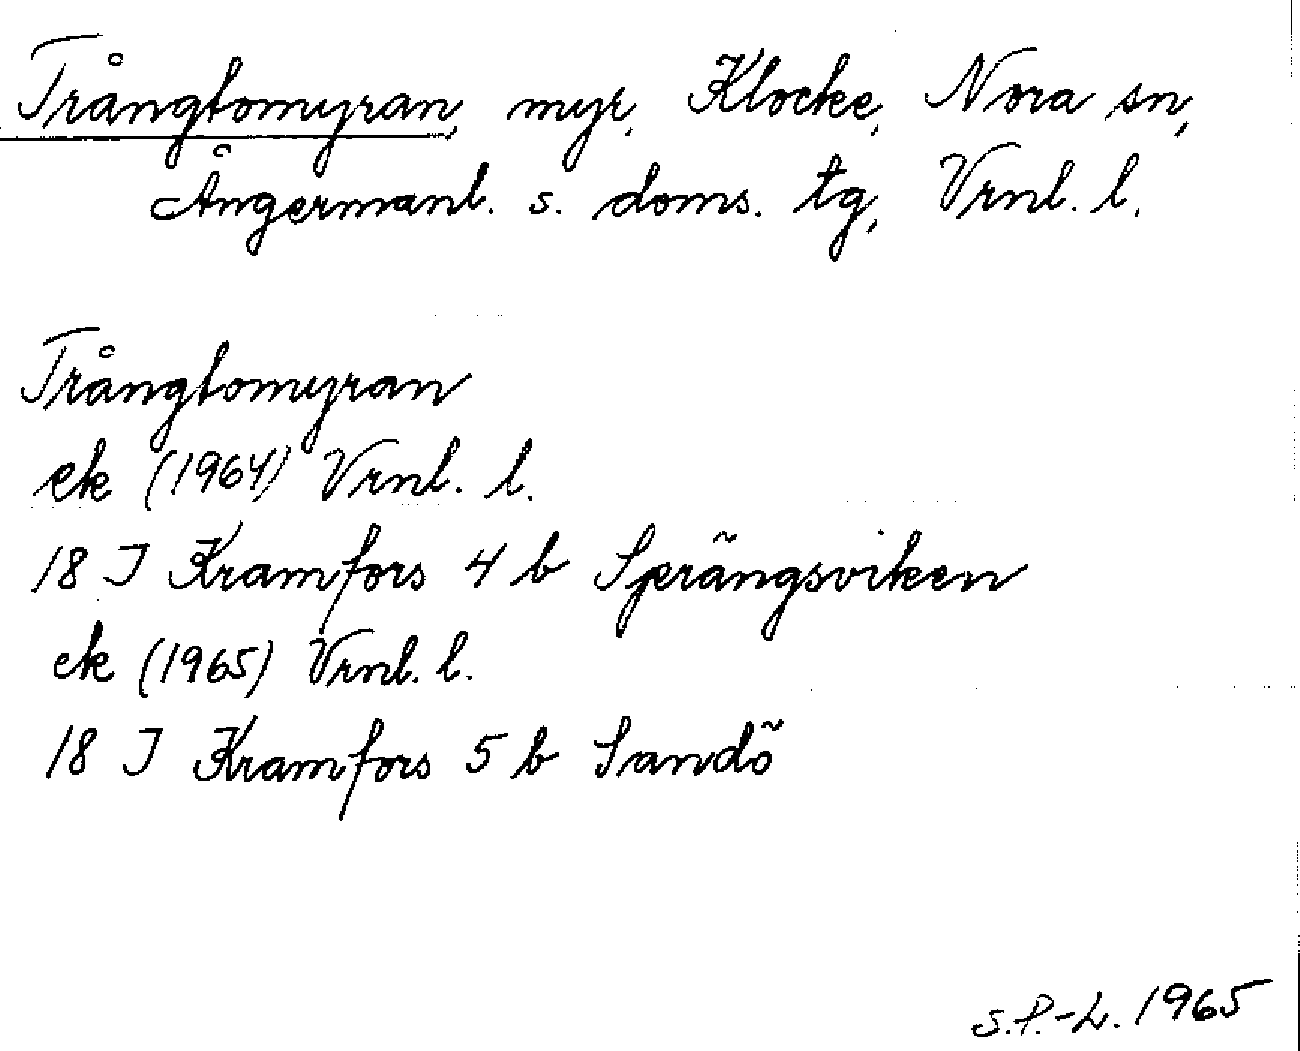 Trångtomyran, myr, Klocke, Nora sn,
Ångermanl. s. doms. tg, Vrnl. l.
Trångtomyran
ek (1964) Vrnl. l.
18 I Kramfors 4 b Sprängsviken
ek (1965) Vrnl. l.
18 I Kramfors 5 b Sandö
S.P.-L. 1965